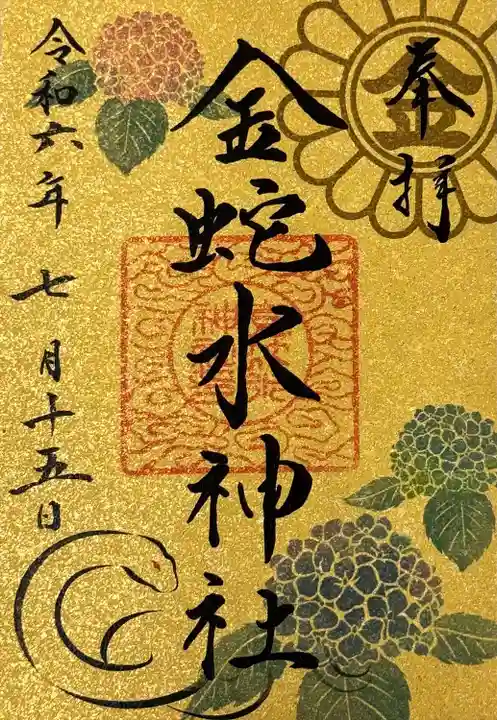 奉拝
金
金蛇水神社
令和六年七月十五日